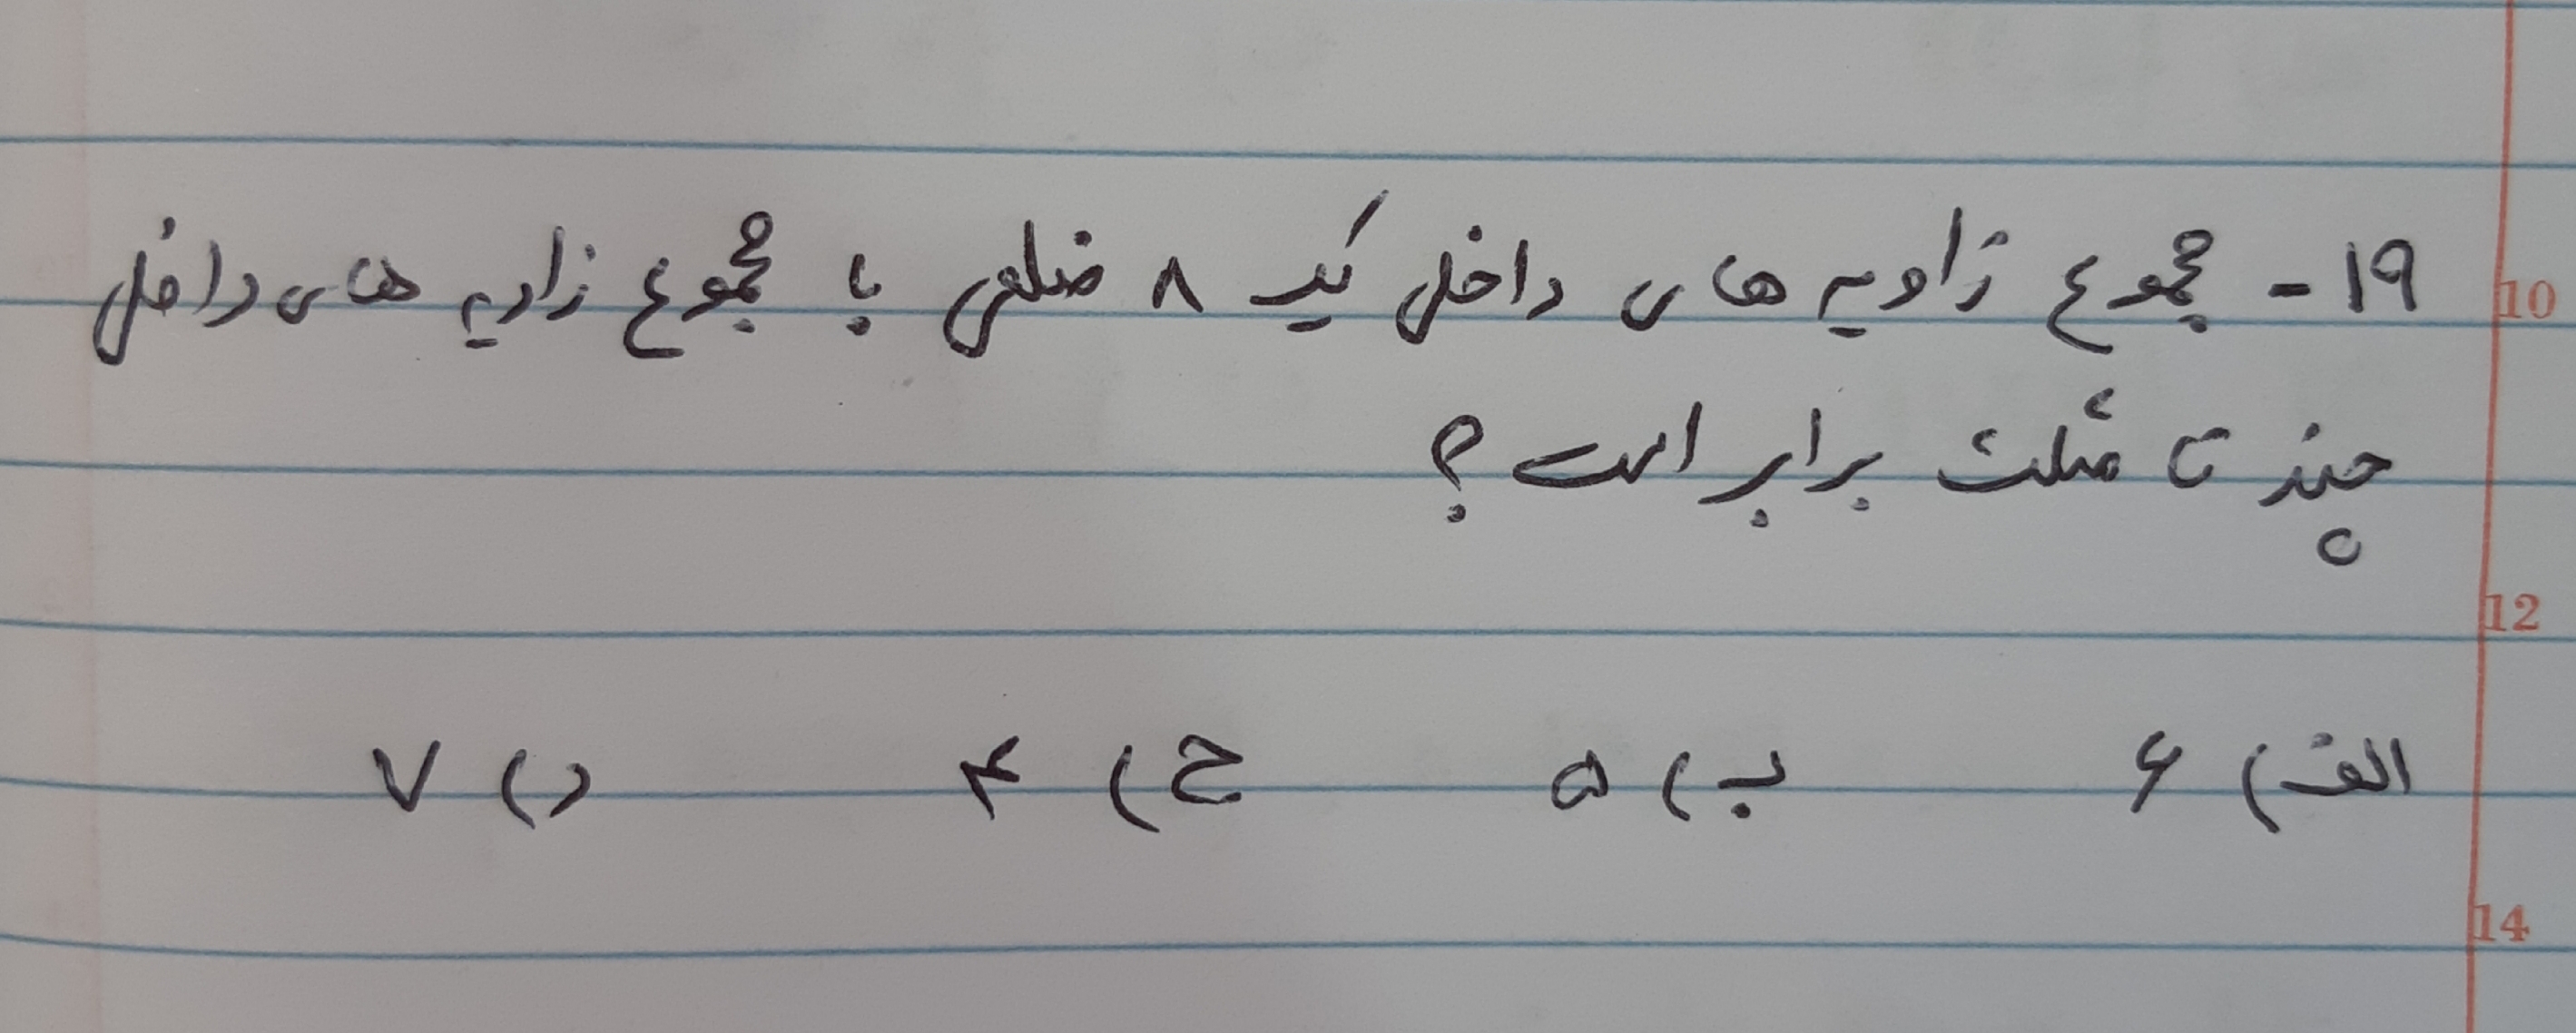 ۱۹- مجموع زاویه های داخلی یک ۸ ضلعی با مجموع زاویه های داخلی
چند تا مثلث برابر است؟
الف) ۶ ب) ۵ ج) ۴ د) ۷
10
12
14